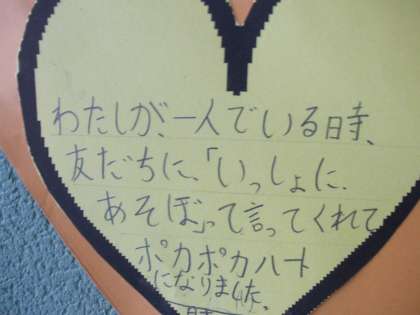 わたしが、一人でいる時、
友だちに、「いっしょに、
あそぼ」って言ってくれて
ポカポカハート
になりました。